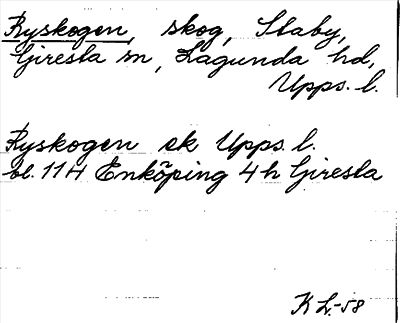 Ryskogen, skog, Staby,
Giresta sn, Lagunda hd,
Upps. l.
Ryskogen ek Upps. l.
bl. 114 Enköping 4h Giresta
K L.-58